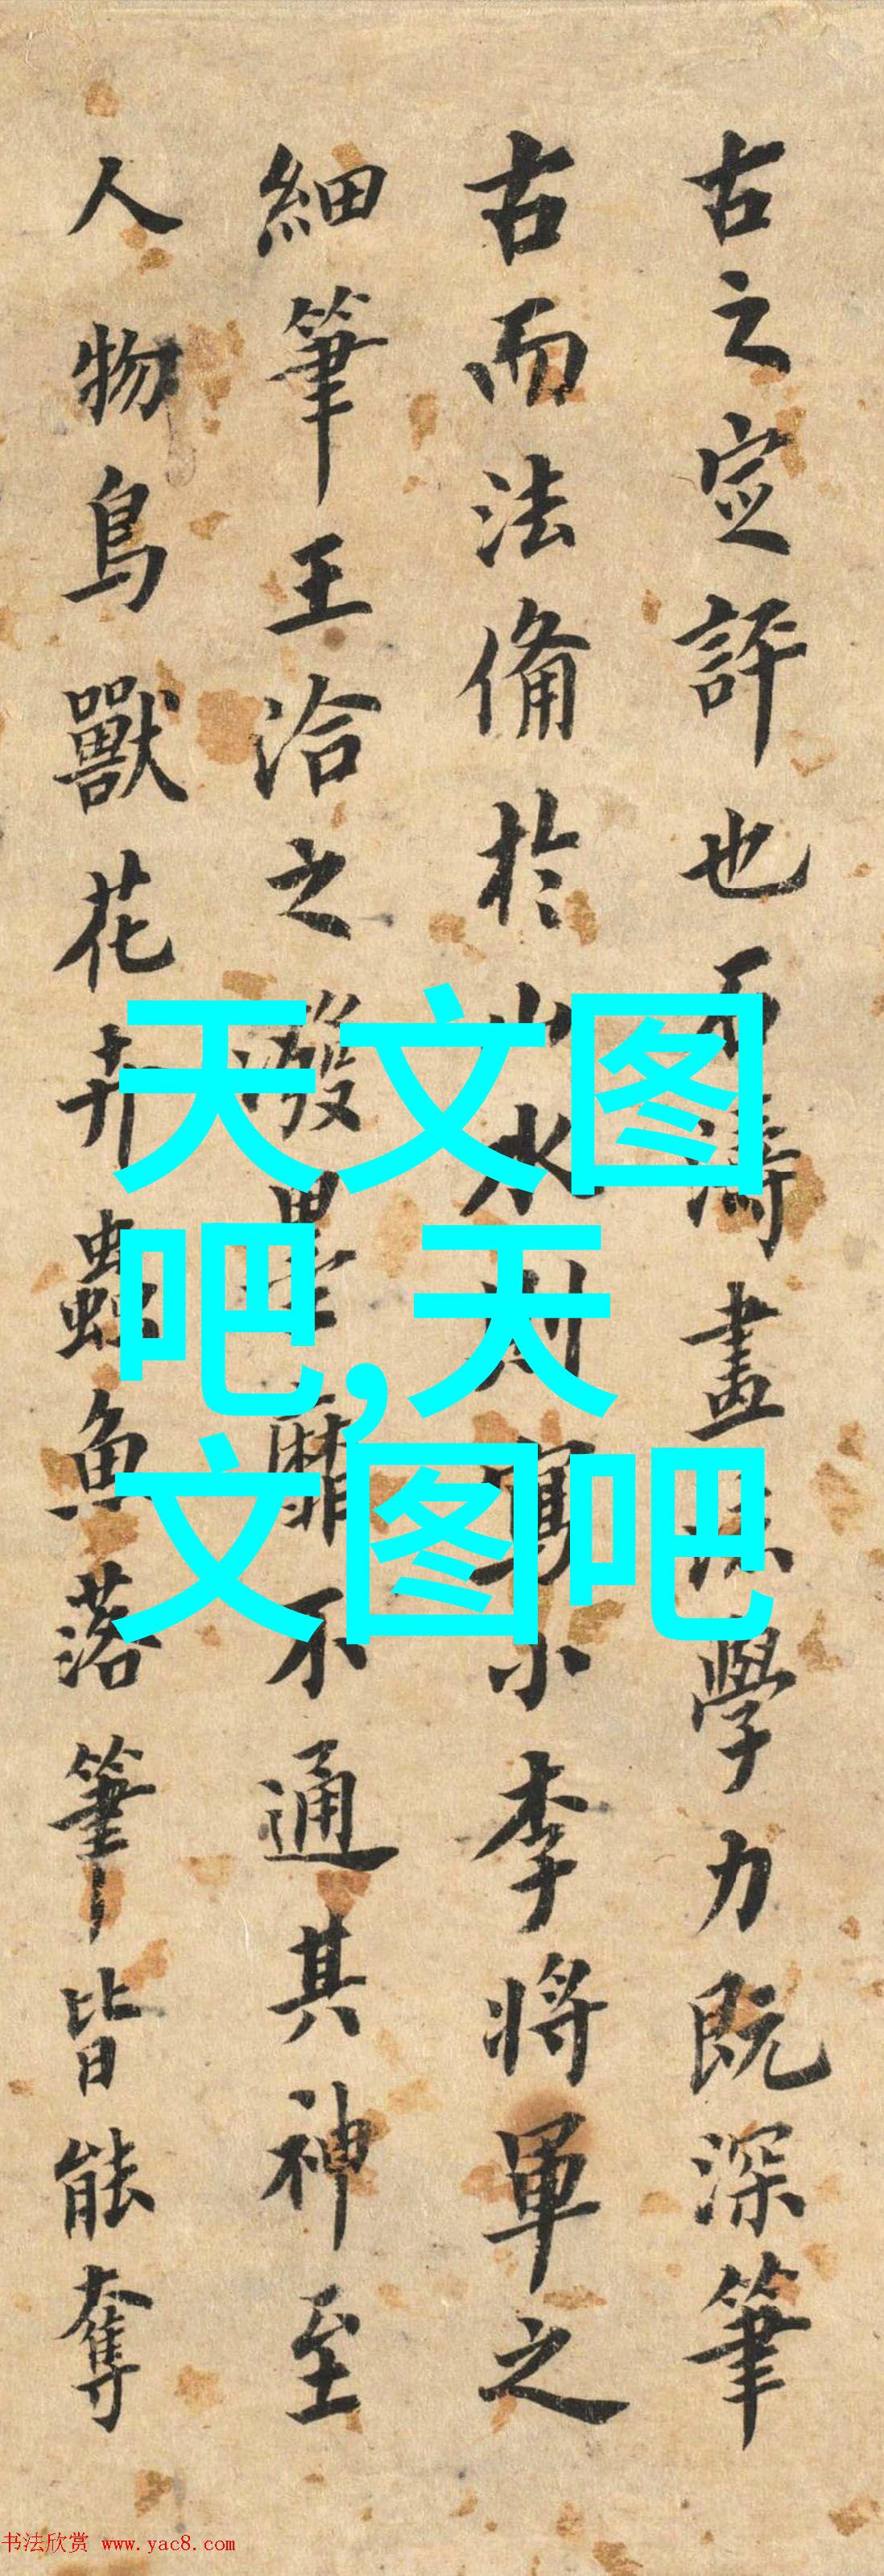 古之定評也石濤畫法學力既深筆
古而法備於山水則寫小李將軍之
細筆王洽之潑墨靡不通其神至
人物鳥獸花卉蟲魚落筆皆能奪
天文图
吧,天
文图吧
书法欣赏 www.yac8.com